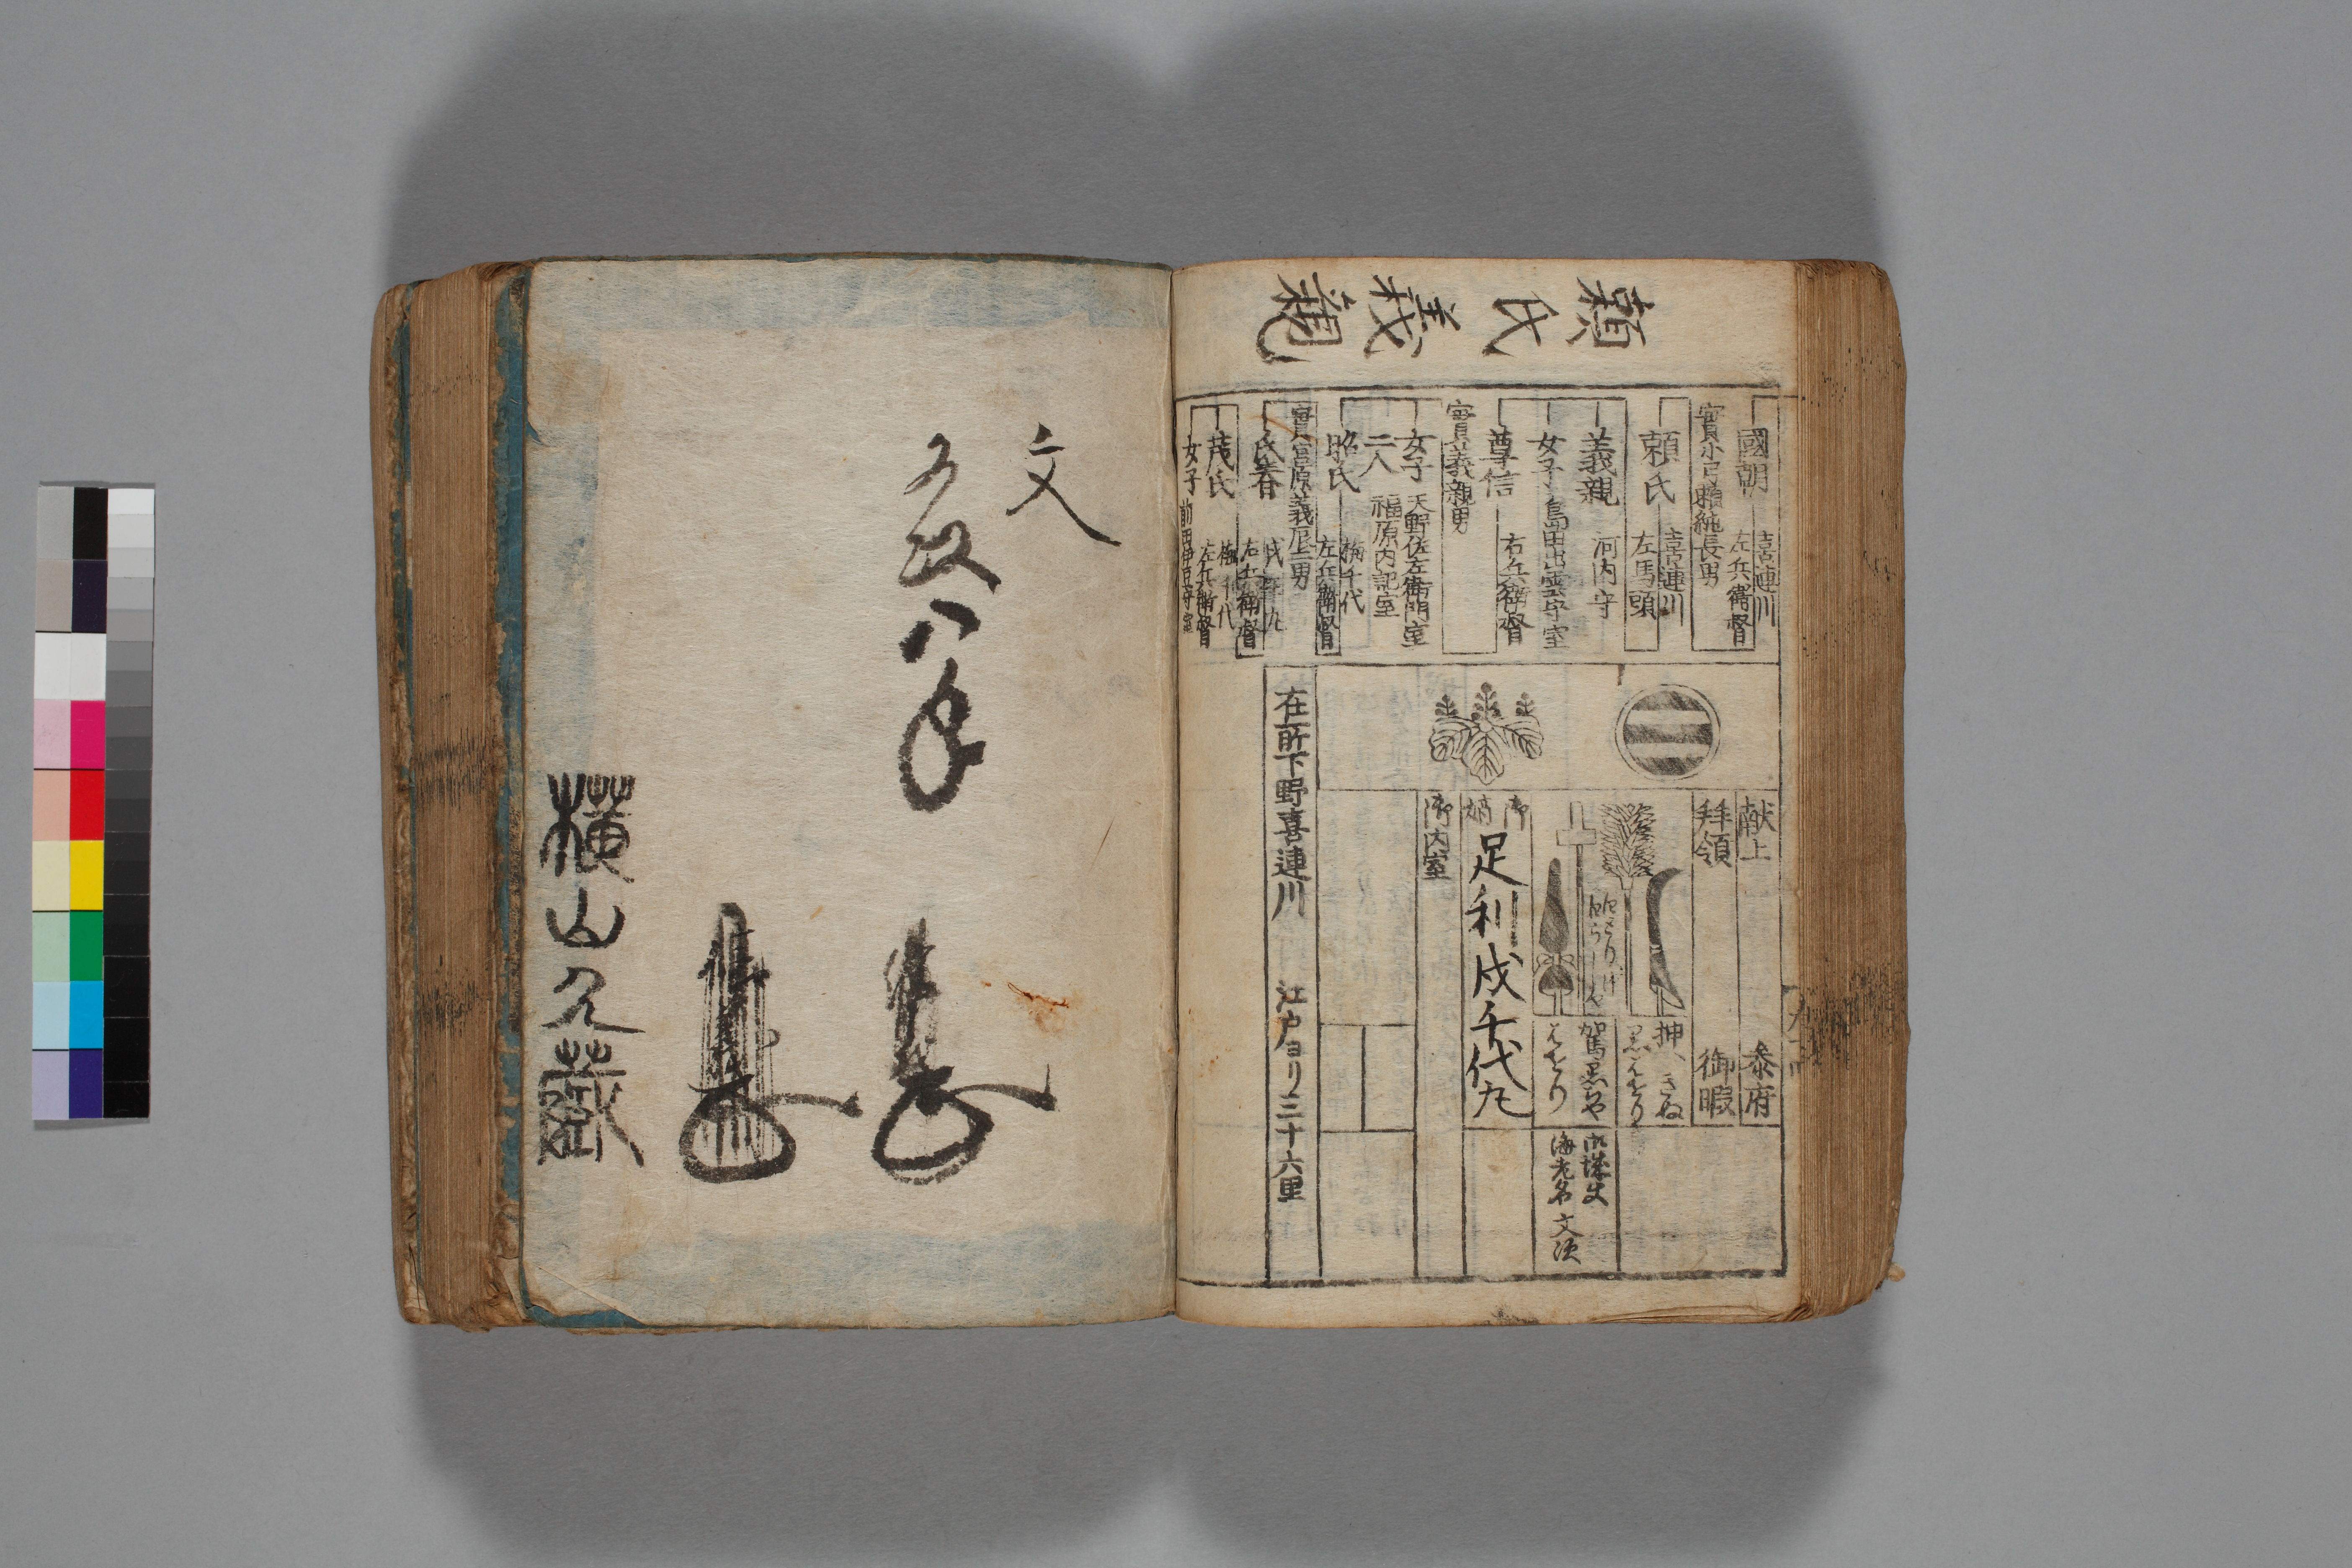 頼氏義親
國朝 喜連川 左兵衞督
實小弓頼純長男
頼氏 喜連川 左馬頭
義親 河内守
女子 島田出雲守室
尊信 右兵衞督
實義親男
女子 天野佐左衞門室
二人 福原内記室
昭氏 梅千代 左兵衞督
實宮原義辰二男
氏春 右兵衞督
茂氏 梅千代 左兵衞督
女子 前田伊豆守室
献上 参府
拝領 御暇
押 きぬ
黒はをり
駕 黒ちや
はをり
海老名 文次
御嫡 足利戌千代丸
御内室
在所下野喜連川 江戸ヨリ三十六里
文
文政八年
横山久蔵